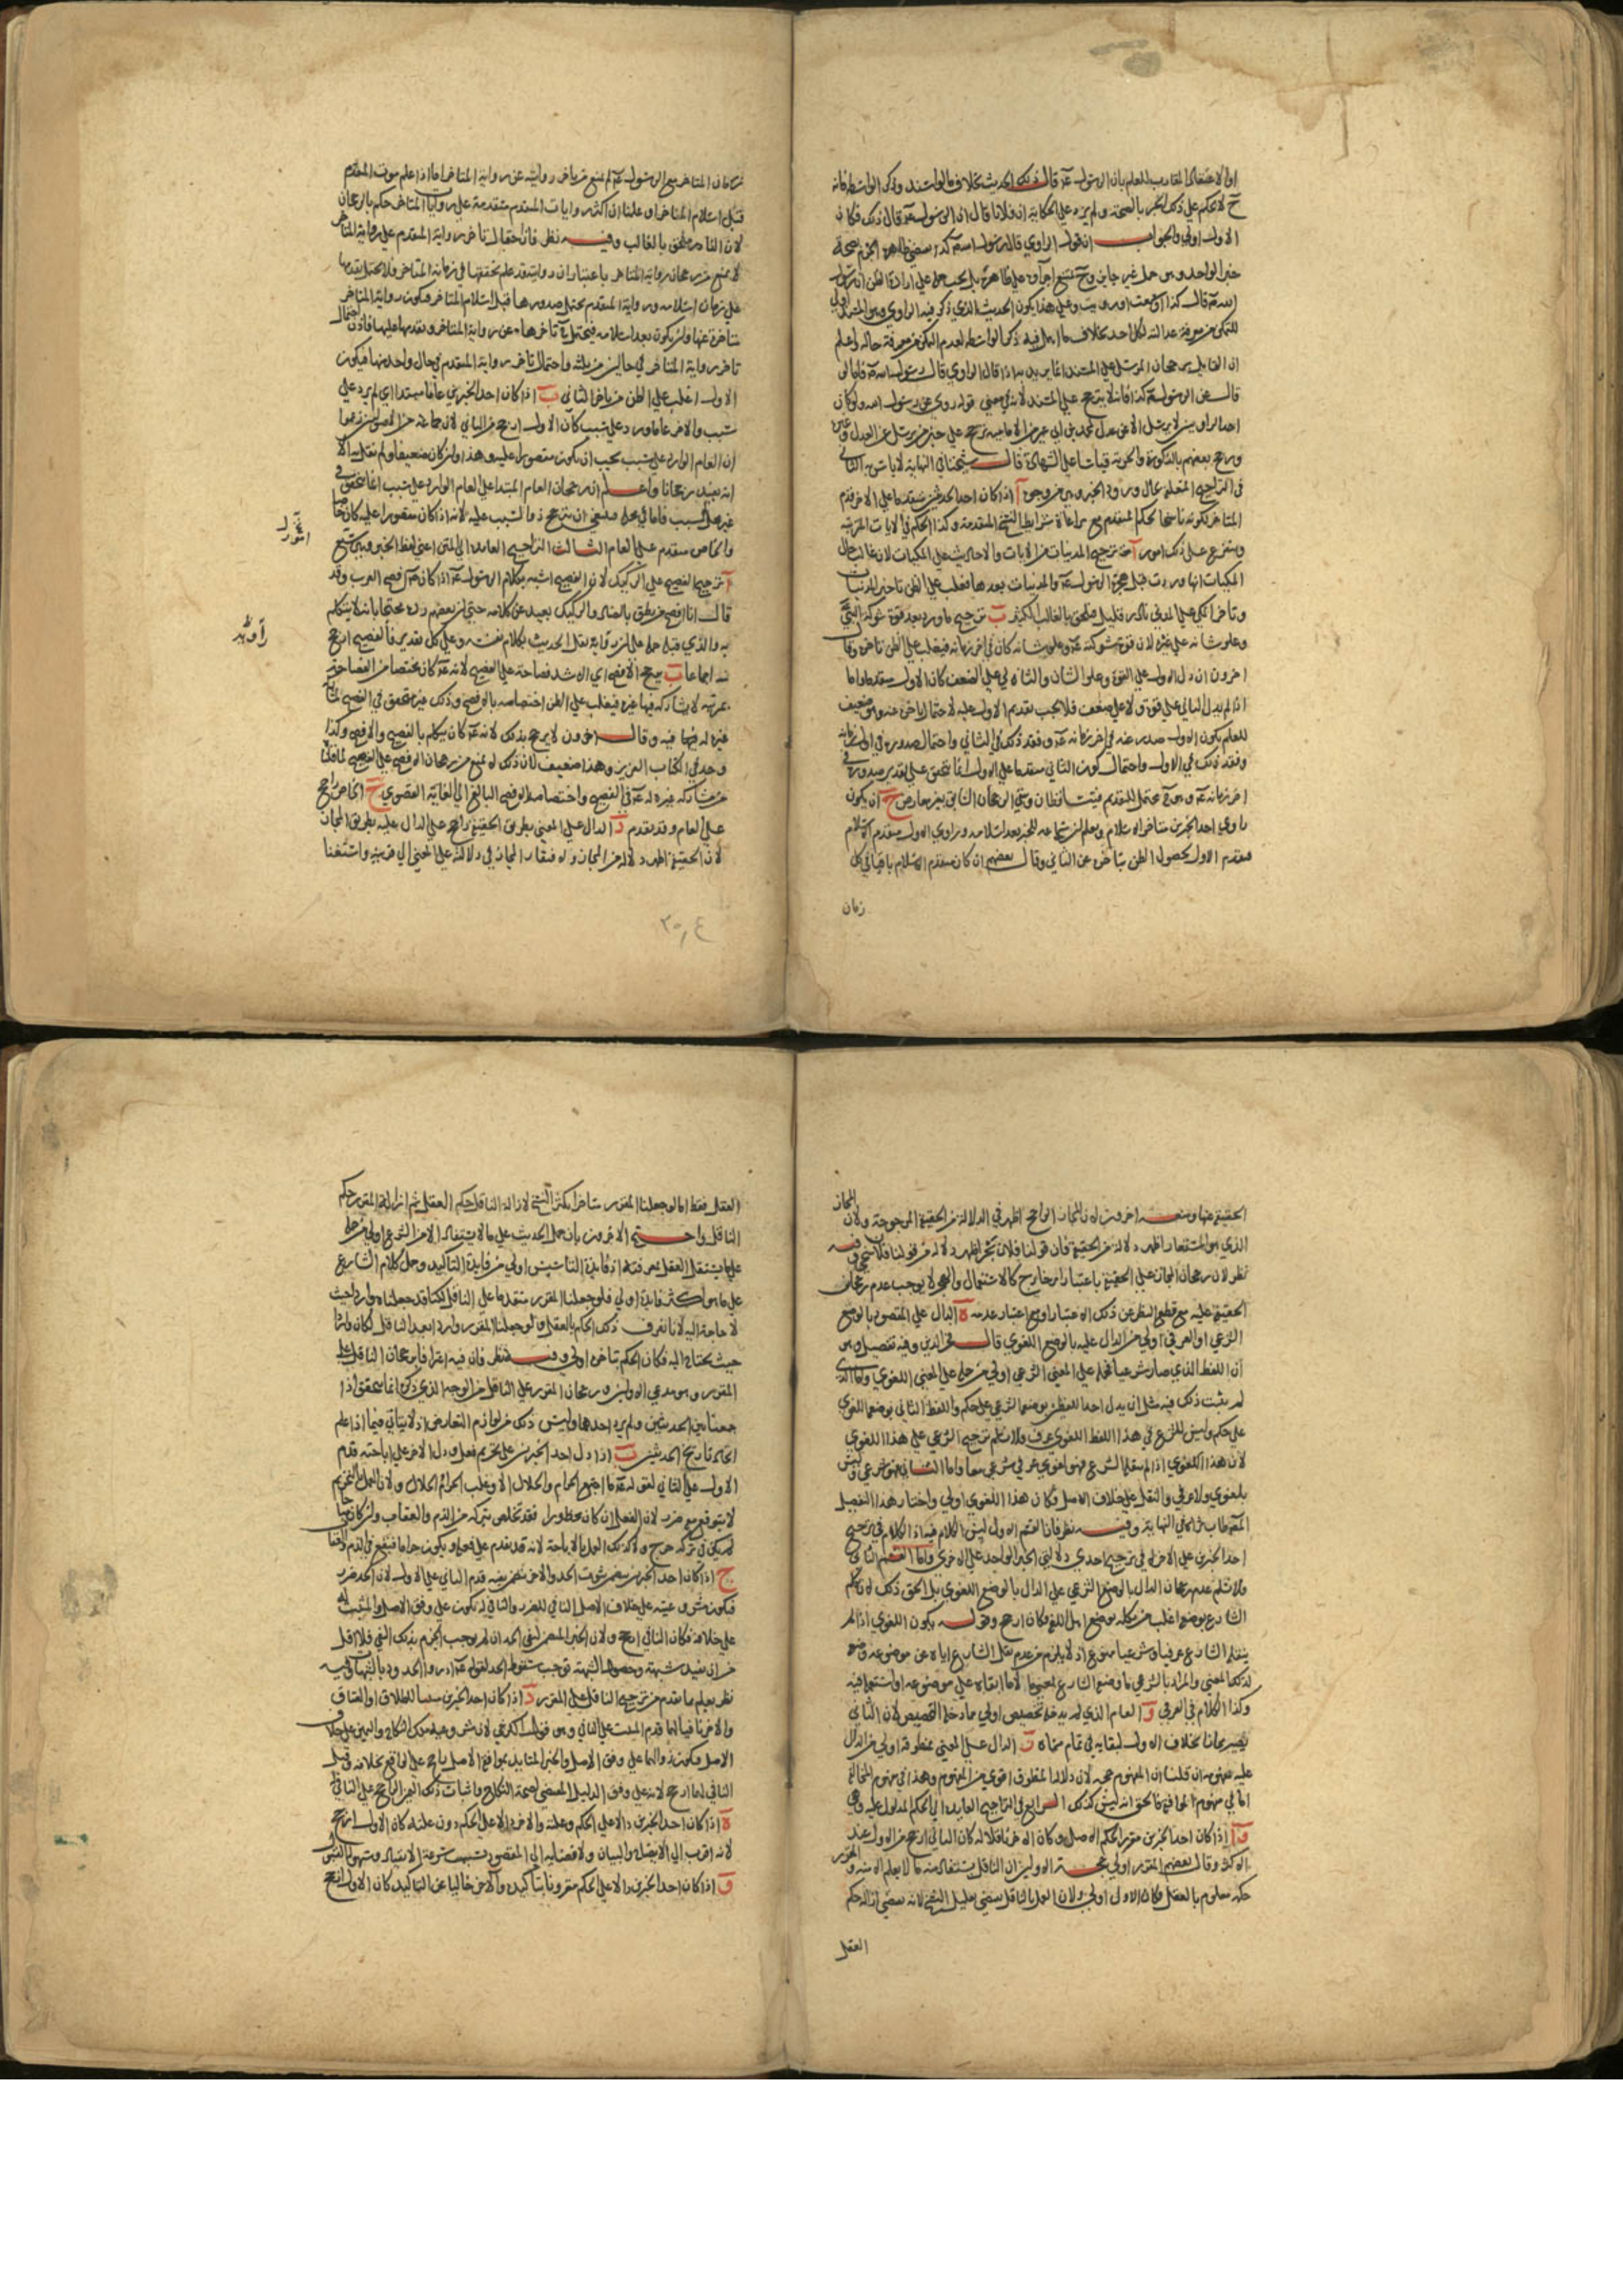 او الاعتقاد المقارب للعلم بان الرسول عم قال ذلك الحديث بخلاف ما لو اسند وذكر الواسطة فانه
ح لا يحكم على ذلك الخبر بالصحة ولم يزد على الحكاية ان فلانا قال ان الرسول عم قال ذلك فكان
الاول اولى والجواب ان قول الراوي قال رسول الله عم كذا يقتضي ظاهره الجزم بصحة
خبر الواحد وهو جهل غير جايز وح يمتنع اجراؤه على ظاهره بل يجب حمله على ارادة الظن ان رسول
الله عم قال كذا او سمعت او رويت وعلى هذا يكون الحديث الذي ذكر فيه الراوي وهو المسند اولى
للتمكن من معرفة عدالته لكل احد بخلاف ما اهمل فيه ذكر الواسطة لعدم التمكن من معرفة حاله واعلم
ان القايل برجحان المرسل على المسند انما يريد به اذا قال الراوي قال رسول الله عم فاما لو
قال عن الرسول عم كذا فانه لا يترجح على المسند لانه في معنى قوله روى عن رسول الله ولو كان
احد الراويين لا يرسل الا عن عدل كمحمد بن ابي عمير من الامامية ترجح على خبر من يرسل عن العدل وغيره
ورجح بعضهم بالذكورة والحرية قياسا على الشهادة قال شيخنا في النهاية لا باس به الثاني
في التراجيح المتعلقة بحال ورود الخبر وهي من وجوه آ اذا كان احد الحديثين متقدما على الاخر قدم
المتاخر لكونه ناسخا لحكم المتقدم مع مراعاة شرايط النسخ المتقدمة وكذا الحكم في الايات المرتبة
ويتفرع على ذلك امور آ ترجيح المدنيات من الايات والاحاديث على المكيات لان غالب حال
المكيات انها وردت قبل هجرة الرسول عم والمدنيات بعدها فغلب على الظن تاخير المدنيات
وتاخر المكي على المدني نادر قليل فيلحق بالغالب الكثير ب ترجيح ما ورد بعد قوة شوكة النبي عم
وعلو شانه على غيره لان قوة شوكته عم وعلو شانه كان في اخر زمانه فيغلب على الظن تاخره وقال
اخرون ان دل الاول على القوة وعلو الشان والثاني على الضعف كان الاول متقدما واما
اذا لم يدل الثاني على قوة ولا على ضعف فلا يجب تقديم الاول عليه لاحتمال تاخره عنه وهو ضعيف
للعلم بكون الاول صدر عنه في اخر زمانه عم وفقد ذلك في الثاني واحتمال صدوره في اول زمانه
وفقد ذلك في الاول واحتمال كون الثاني متقدما على الاول انما يتحقق على تقدير صدوره في
اخر زمانه عم وهو ح محتمل للتقديم فيتساقطان ويبقى الرجحان الثابت بغير معارض ج ان يكون
راوي احد الخبرين متاخر الاسلام ويعلم ان سماعه للخبر بعد اسلامه وراوي الاول متقدم الاسلام
فيقدم الاول لحصول الظن بتاخره عن الثاني وقال بعضهم ان كان متقدم الاسلام باقيا في كل
زمان
زمان المتاخر مع الرسول عم لم يمنع من تاخر روايته عن رواية المتاخر اما اذا علم موت المتقدم
قبل اسلام المتاخر او علمنا ان اكثر روايات المتقدم متقدمة على روايات المتاخر حكم بالرجحان
لان النادر يلحق بالغالب وفيه نظر فان احتمال تاخر رواية المتقدم على رواية المتاخر
لا يمنع من رجحان رواية المتاخر باعتبار ان روايته قد علم تحققها في زمانه المتاخر فلا يحتمل تقدمها
على زمان اسلامه ورواية المتقدم يحتمل صدورها قبل اسلام المتاخر فيكون رواية المتاخر
متاخرة عنها وان يكون بعد اسلامه فيحتمل ح تاخرها عن رواية المتاخر وتقدمها عليها فاذن احتمال
تاخر رواية المتاخر في حالين من ثلثة واحتمال تاخر رواية المتقدم في حال واحد منها فيكون
الاول اغلب على الظن من تاخر الثاني ب اذا كان احد الخبرين عاما مبتدا اي لم يرد على
سبب والاخر عاما ورد على سبب كان الاول ارجح من الثاني لان جماعة من الاصوليين زعموا
ان العام الوارد على سبب يجب ان يكون مقصورا عليه وهذا وان كان ضعيفا ولم نقل به الا
انه يفيد رجحانا واعلم ان رجحان العام المبتدا على العام الوارد على سبب انما يتحقق في
غير محل السبب فاما في محله فينبغي ان يترجح ذو السبب عليه لانه اذا كان مقصورا عليه كان خاصا
والخاص متقدم على العام الثالث التراجيح العايدة الى المتن اعني لفظ الخبر وهي تسع
آ ترجيح الفصيح على الركيك لان الفصيح اشبه بكلام الرسول عم اذا كان عم افصح العرب وقد
قال انا افصح من نطق بالضاد والركيك بعيد عن كلامه حتى ان بعضهم رده محتجا بانه لا يتكلم
به والذي قبله حمله على ان راويه نقل الحديث بكلام نفسه وعلى كل تقدير فالفصيح ارجح
منه اجماعا ب يرجح الافصح اي الاشد فصاحة على الفصيح لانه عم كان مختصا من الفصاحة
بمرتبة لا يشاركه فيها غيره فيغلب على الظن اختصاصه بالافصح وذلك غير متحقق في الفصيح لمشاركة
غيره له فيها فيه وقال اخرون لا يرجح بذلك لانه عم كان يتكلم بالفصيح والافصح وكذا
وجد في الكتاب العزيز وهذا ضعيف لان ذلك لا يمنع من رجحان الافصح على الفصيح لما قلنا
من مشاركة غيره له عم في الفصيح واختصاصه بالافصح البالغ الى الغاية القصوى ج الخاص راجح
على العام وقد تقدم د الدال على المعنى بطريق الحقيقة راجح على الدال عليه بطريق المجاز
لان الحقيقة اظهر دلالة من المجاز ولافتقار المجاز في دلالته على المعنى الى قرينة واستغناء
الحقيقة عنها ومنعه اخرون لان المجاز الراجح اظهر في الدلالة من الحقيقة المرجوحة ولان المجاز
الذي هو المستعار اظهر دلالة من الحقيقة فان قولنا فلان بحر اظهر دلالة من قولنا فلان سخي وفيه
نظر لان رجحان المجاز على الحقيقة باعتبار امر خارج كالاستعمال والهجر لا يوجب عدم رجحان
الحقيقة عليه مع قطع النظر عن ذلك الاعتبار او مع اعتبار عدمه ه الدال على المقصود بالوضع
الشرعي او العرفي اولى من الدال عليه بالوضع اللغوي قال فخر الدين وفيه تفصيل وهو
ان اللفظ الذي صار شرعيا فحمله على المعنى الشرعي اولى من حمله على المعنى اللغوي واما الذي
لم يثبت ذلك فيه مثل ان يدل احد اللفظين بوضعه الشرعي على حكم واللفظ الثاني بوضعه اللغوي
على حكم وليس للشرع في هذا اللفظ اللغوي عرف فلا نسلم ترجيح الشرعي على هذا اللغوي
لان هذا اللغوي اذا لم ينقله الشرع فهو لغوي عرفي شرعي معا واما الثاني فهو شرعي وليس
بلغوي ولا عرفي والنقل على خلاف الاصل فكان هذا اللغوي اولى واختار هذا التفصيل
المصنف طاب ثراه في النهاية وفيه نظر فان القسم الاول ليس الكلام فيه اذ الكلام في ترجيح
احد الخبرين على الاخر لا في ترجيح احدى دلالتي الخبر الواحد على الاخرى واما القسم الثاني
ولا نسلم عدم رجحان الدال بالوضع الشرعي على الدال بالوضع اللغوي بل الحق ذلك لان تكلم
الشارع بوضعه اغلب من تكلمه بوضع اهل اللغة فكان ارجح وقوله يكون اللغوي اذا لم
ينقله الشارع عرفيا وشرعيا ممنوع اذ لا يلزم من عدم نقل الشارع اياه عن موضوعه وضعه
لذلك المعنى والمراد بالشرعي ما وضعه الشارع لمعنى لا ما ابقاه على موضوعه او استعمله فيه
وكذا الكلام في العرفي و العام الذي لم يدخله تخصيص اولى مما دخله التخصيص لان الثاني
يصير مجازا بخلاف الاول لبقايه في تمام مسماه ز الدال على المعنى بمنطوقه اولى من الدال
عليه بمفهومه ان قلنا ان المفهوم حجة لان دلالة المنطوق اقوى من المفهوم وهذا في مفهوم المخالفة
اما في مفهوم الموافقة فالحق انه ليس كذلك الرابع في التراجيح العايدة الى الحكم المدلول عليه وهي
آ اذا كان احد الخبرين مقررا لحكم الاصل وكان الاخر ناقلا له كان الثاني ارجح من الاول عند
الاكثر وقال بعضهم المقرر اولى حجة الاولين ان الناقل يستفاد منه ما لا يعلم الا منه والمقرر
حكمه معلوم بالعقل فكان الاول اولى ولان العمل بالناقل يقتضي تقليل النسخ لانه يقتضي ازالة حكم
العقل
العقل فقط اما لو جعلنا المقرر متاخرا يكثر النسخ لازالة الناقل حكم العقل ثم ازالة المقرر حكم
الناقل واحتج الاخرون بان حمل الحديث على ما لا يستفاد الا من الشرع اولى من حمله
على ما يستقل العقل بمعرفته اذ فايدة التاسيس اولى من فايدة التاكيد وحمل كلام الشارع
على ما هو اكثر فايدة اولى فلو جعلنا المقرر متقدما على الناقل لكنا قد جعلناه واردا حيث
لا حاجة اليه لانا نعرف ذلك الحكم بالعقل ولو جعلنا المقرر واردا بعد الناقل لكان واردا
حيث يحتاج اليه فكان الحكم بتاخره اولى وفيه نظر فان فيه اعترافا برجحان الناقل على
المقرر وهو مدعى الاولين لا رجحان المقرر على الناقل من الوجه الذي ذكره انما يتحقق اذا
جمعنا بين الحديثين ولم يرد احدهما وليس ذلك من لوازم التعارض اذ لا يتاتى فيما اذا علم
اتحاد تاريخ الحديثين ب اذا دل احد الخبرين على تحريم فعل ودل الاخر على اباحته قدم
الاول على الثاني لقوله عم ما اجتمع الحرام والحلال الا وغلب الحرام الحلال ولان العمل بالتحريم
لا يتوقع معه ضرر لان الفعل ان كان محظورا فقد تخلص بتركه من الذم والعقاب وان كان مباحا
لم يكن في تركه حرج ولا كذلك العمل بالاباحة لانه قد يقدم على فعله ويكون حراما فيقع في الذم والعقاب
ج اذا كان احد الخبرين يتضمن ثبوت الحد والاخر يتضمن نفيه قدم الثاني على الاول لان الحد ضرر
فيكون مشروعيته على خلاف الاصل النافي للضرر والنافي له يكون على وفق الاصل والمثبت له
على خلافه فكان النافي ارجح ولان الخبر المتضمن لنفي الحد ان لم يوجب الجزم بذلك النفي فلا اقل
من ان يفيد شبهة وحصول الشبهة توجب سقوط الحد لقوله عم ادرؤا الحدود بالشبهات وفيه
نظر يعلم مما تقدم من ترجيح الناقل على المقرر د اذا كان احد الخبرين مثبتا للطلاق او العتاق
والاخر نافيا لهما قدم المثبت على النافي وهو قول الكرخي لان مشروعية ملك النكاح واليمين على خلاف
الاصل فيكون زوالهما على وفق الاصل والخبر المتايد بموافقة الاصل راجح على الواقع بخلافه وقيل
النافي لهما ارجح لانه على وفق الدليل المقتضي لصحة النكاح واثبات ملك اليمين الراجح على النافي
ه اذا كان احد الخبرين دالا على الحكم وعلته والاخر دالا على الحكم دون علته كان الاول ارجح
لانه اقرب الى الايضاح والبيان ولافضايه الى المقصود بسبب سرعة الانقياد وسهولة القبول
و اذا كان احد الخبرين دالا على حكم مقرونا بتاكيد والاخر خاليا عن التاكيد كان الاول ارجح